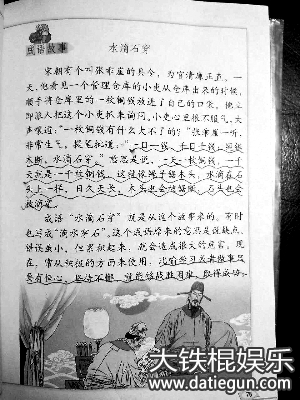 成语故事
水滴石穿
宋朝有个叫张乖崖的县令，为官清廉正直。一
天，他看见一个管理仓库的小吏从仓库出来的时候，
顺手将仓库里的一枚铜钱放进了自己的口袋。他立
即派人把这个小吏抓来审问。小吏心里很不服气，大
声嚷道："一枚铜钱有什么大不了的？"张乖崖一听，
非常生气，提笔批道："一日一钱，千日千钱；绳锯
木断，水滴石穿。"意思是说，一天一枚铜钱，一千
天就是一千枚铜钱。这就像绳子锯木头，水滴在石
头上一样，日久天长，木头也会被锯断，石头也会
被滴穿。
成语"水滴石穿"就是从这个故事来的。有时
也写成"滴水穿石"。这个成语原来的意思是说缺点、
错误虽小，但累积起来，就会造成很大的危害。现
在，常从积极的方面来使用，比喻学习或者做事只
要有恒心，坚持不懈，就能够战胜困难，取得成功。
大铁棍娱乐
www.datiegun.com